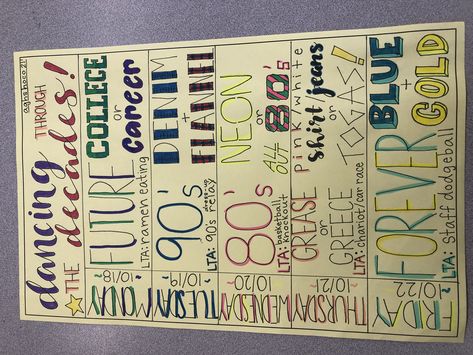 aghshoco 21'
dancing THROUGH
THE decades!
MONDAY
~10/18~
FUTURE
LTA: ramen eating
COLLEGE
or
career
TUESDAY
~10/19~
90's
LTA: 90's dress-up relay
DENIM
+
FLANNEL
WEDNESDAY
~10/20~
80's
LTA: basketball knockout
NEON
or
80's
THURSDAY
~10/21~
GREASE
or
GREECE
LTA: chariot/car race
pink/white
shirt jeans
or
TOGAS!
FRIDAY
~10/22~
FOREVER
LTA: Staff dodgeball
BLUE
+
GOLD